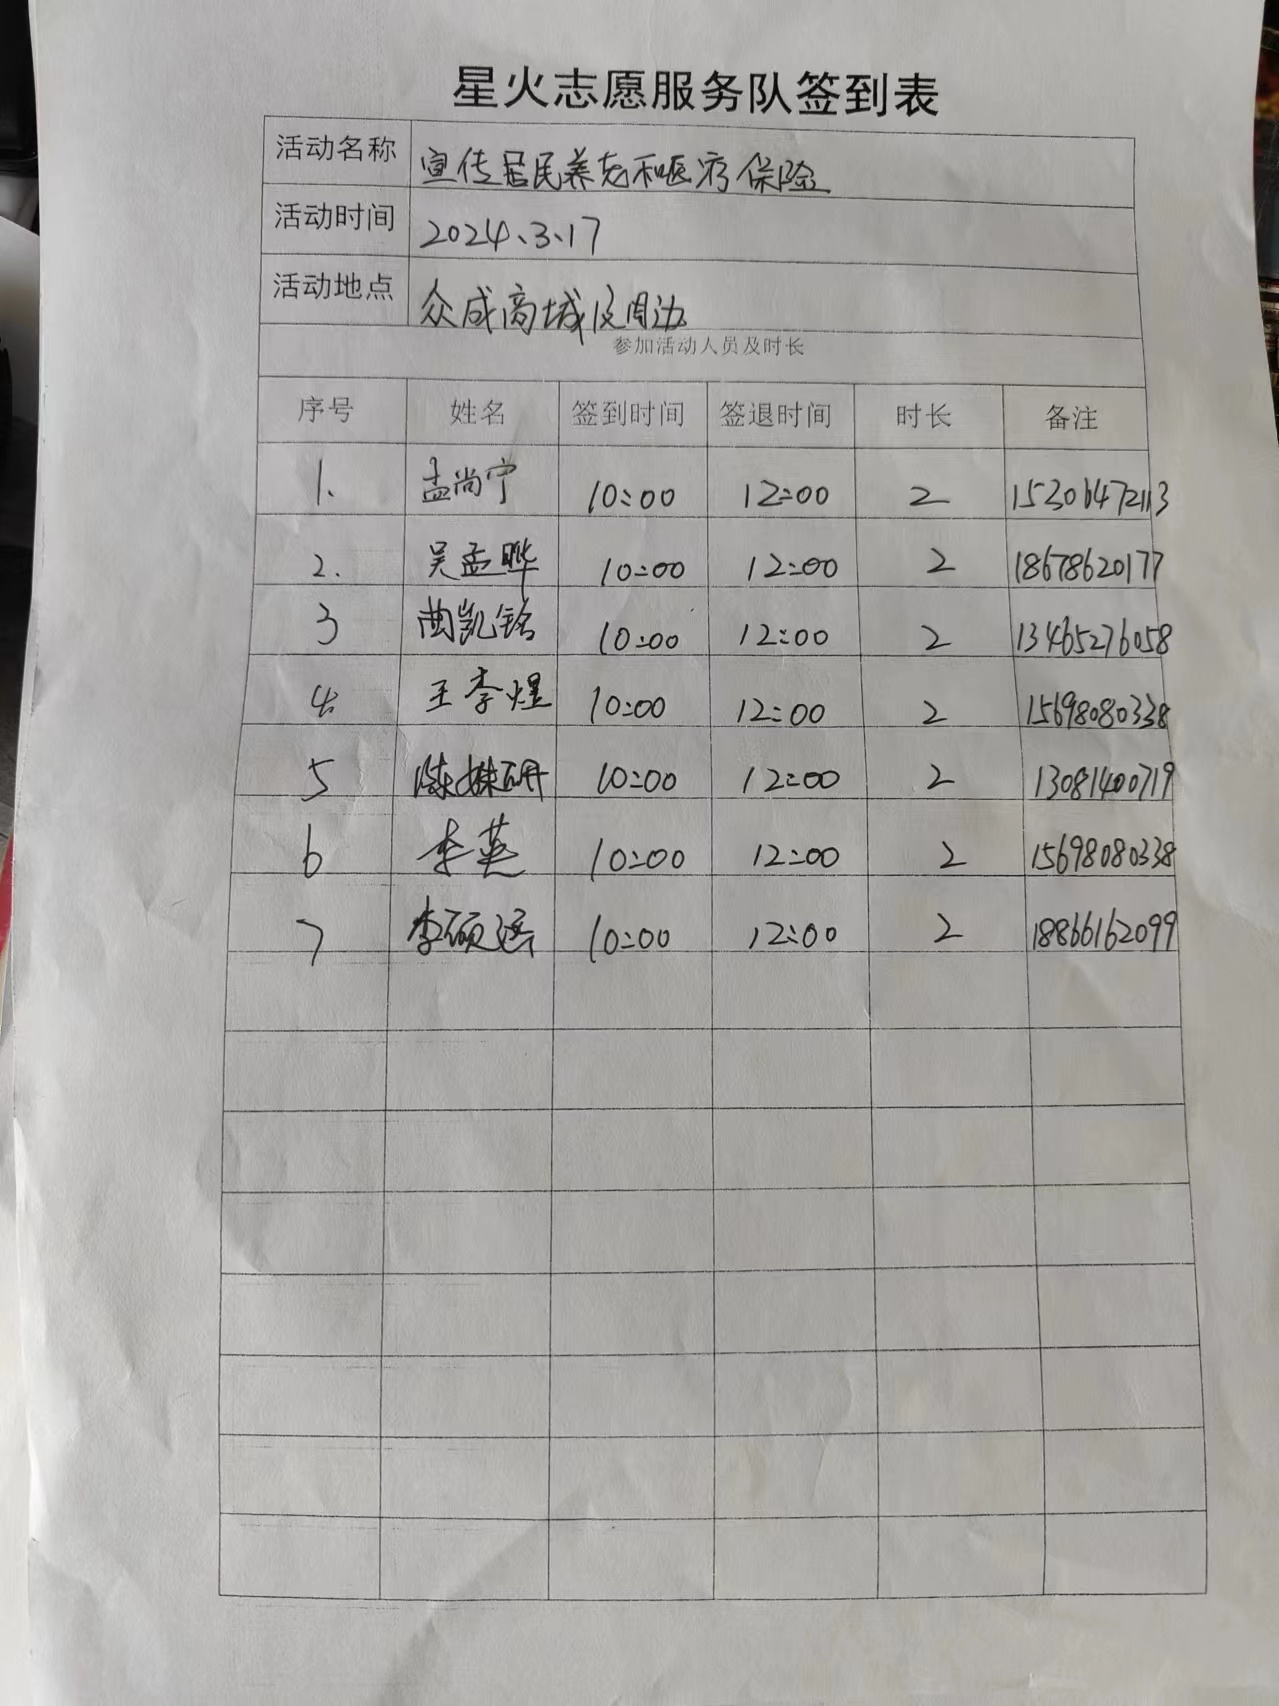 星火志愿服务队签到表
活动名称 宣传居民养老和医疗保险
活动时间 2024、3、17
活动地点 众成商城及周边
参加活动人员及时长
序号 姓名 签到时间 签退时间 时长 备注
1. 孟尚宁 10:00 12:00 2 15306472113
2. 吴孟晔 10:00 12:00 2 18678620177
3 曲凯铭 10:00 12:00 2 13465276058
4. 王李煜 10:00 12:00 2 15698080338
5 陈姝研 10:00 12:00 2 13081400719
6 李英 10:00 12:00 2 15698080338
7 李硕远 10:00 12:00 2 18866162099